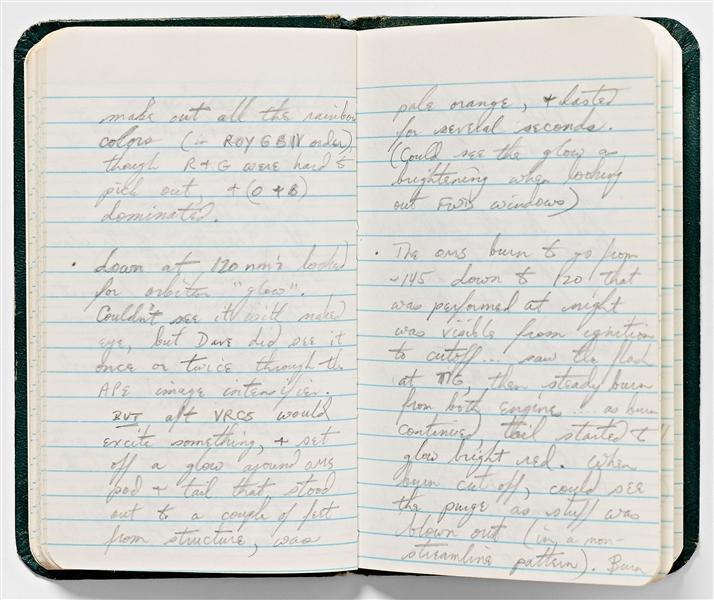 make out all the rainbow
colors (in ROYGBIV order),
though R+G were hard to
pick out, + (O + B)
dominated.
• Down at 120 nm's looked
for orbiter "glow".
Couldn't see it with naked
eye, but Dave did see it
once or twice through the
APE image intensifier.
BUT aft VRCS would
excite something, + set
off a glow around OMS
pod + tail that stood
out to a couple of feet
from structure, was
pale orange, + lasted
for several seconds.
(Could see the glow as
brightening when looking
out FWD windows)
• The OMS burn to go from
~145 down to 120 that
was performed at night
was visible from ignition
to cutoff... saw the flash
at TIG, then steady burn
from both engines... as burn
continued, tail started to
glow bright red. When
burn cut off, could see
the purge as stuff was
blown out (in a non-
streamline pattern). Burn